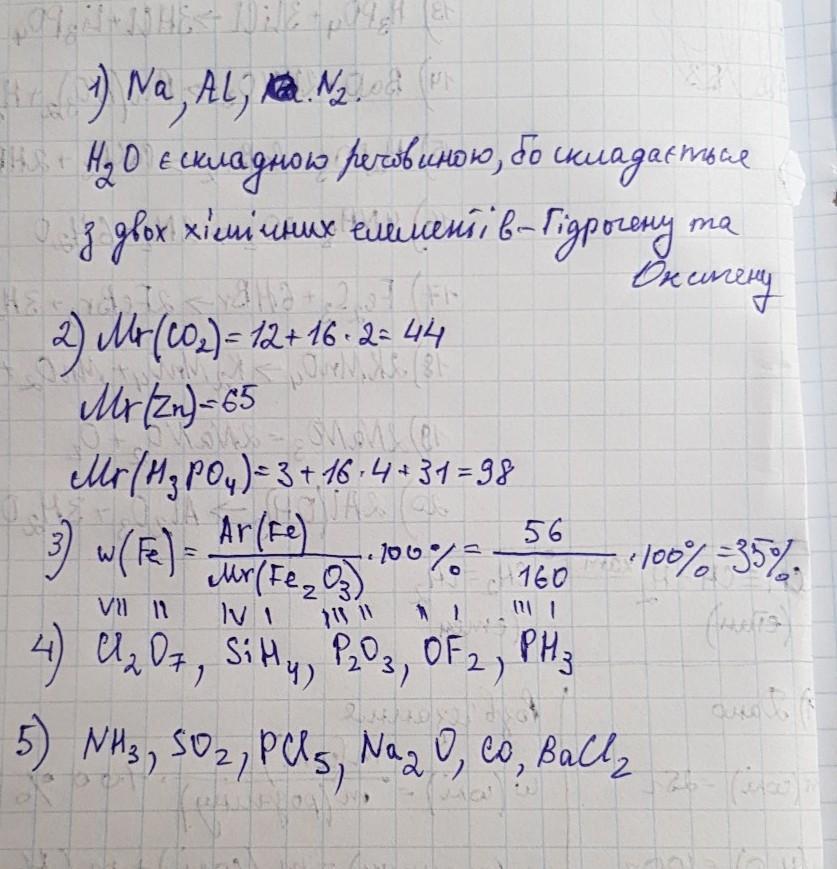 1) Na, Al, N₂.
H₂O є складною речовиною, бо складається
з двох хімічних елементів – Гідрогену та
Оксигену
2) Mr(CO₂) = 12 + 16 · 2 = 44
Mr(Zn) = 65
Mr(H₃PO₄) = 3 + 16 · 4 + 31 = 98
3) w(Fe) = Ar(Fe) / Mr(Fe₂O₃) · 100% = 56 / 160 · 100% = 35%.
VII II IV I III II II I III I
4) Cl₂O₇, SiH₄, P₂O₃, OF₂, PH₃
5) NH₃, SO₂, PCl₅, Na₂O, CO, BaCl₂